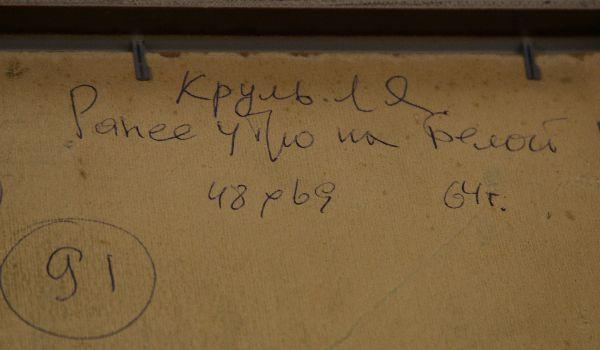 Круль Л Я
Ранее утро на Белой
48 х 69 64 г.
91